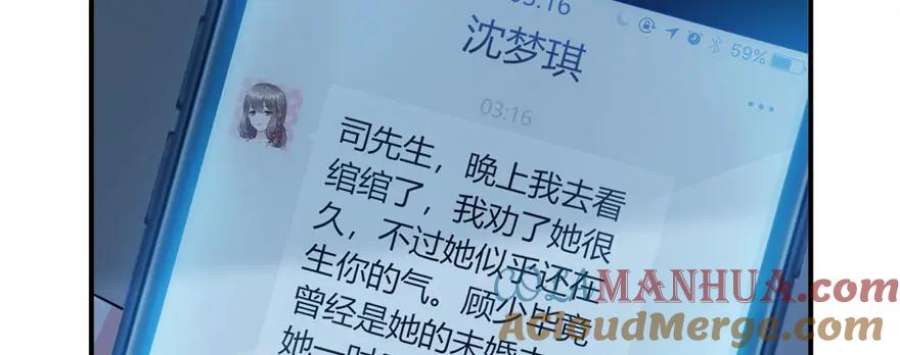 03:16
59%
沈梦琪
03:16
司先生，晚上我去看
绾绾了，我劝了她很
久，不过她似乎还在
生你的气。顾少毕竟
曾经是她的未婚夫
她一时
COLAMANHUA.com
AcloudMerge.com